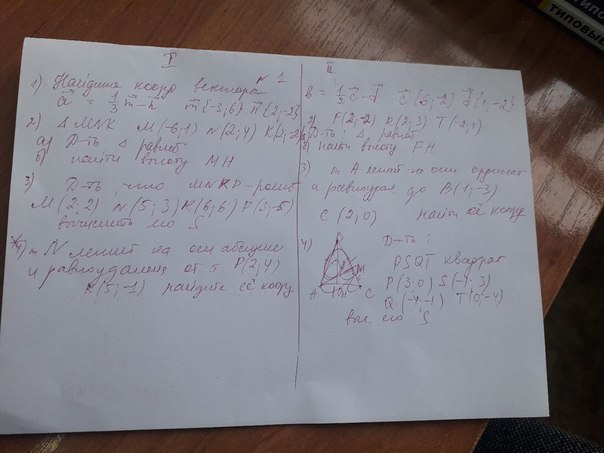 I
1) Найдите коорд вектора
a = 1/3 m - n m{-3;6} n{2;-2}
2) Δ MNK M(-6;1) N(2;4) K(2;-2)
а) Д-ть Δ равноб
б) найти высоту MH
3) Д-ть, что MNKP-
M(2;2) N(5;3) K(6;6) P(3;-5)
вычислить его S.
т N лежит на оси абсцисс
и равноудалена от т. P(2;4)
K(5;-1) найдите её коорд
II
в = 1/2 c - d c{6;-2} d{1;-2}
F(2;-2) R(2;3) T(-2;1)
а) Д-ть: Δ равноб
б) найти высоту FH
3) т A лежит на оси ординат
и равноудал. до B(1;-3)
C(2;0) найти её коорд
4) Д-ть:
PSQT квадрат
P(3;0) S(-1;3)
Q(-4;-1) T(0;-4)
его S.